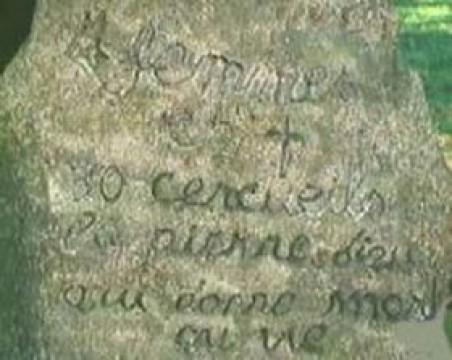 4 femmes
et †
30 cercueils
La pierre-dieu
qui donne mort
ou vie